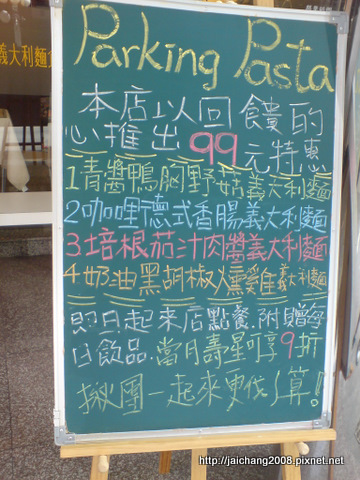 Parking Pasta
本店以回饋的
心推出99元特惠
1青醬鴨胸野菇義大利麵
2咖哩德式香腸義大利麵
3.培根茄汁肉醬義大利麵
4.奶油黑胡椒燻雞義大利麵
即日起來店點餐.附贈每
日飲品.當月壽星可享9折
揪團一起來更划算!
義大利麵
http://jaichang2008.pixnet.net